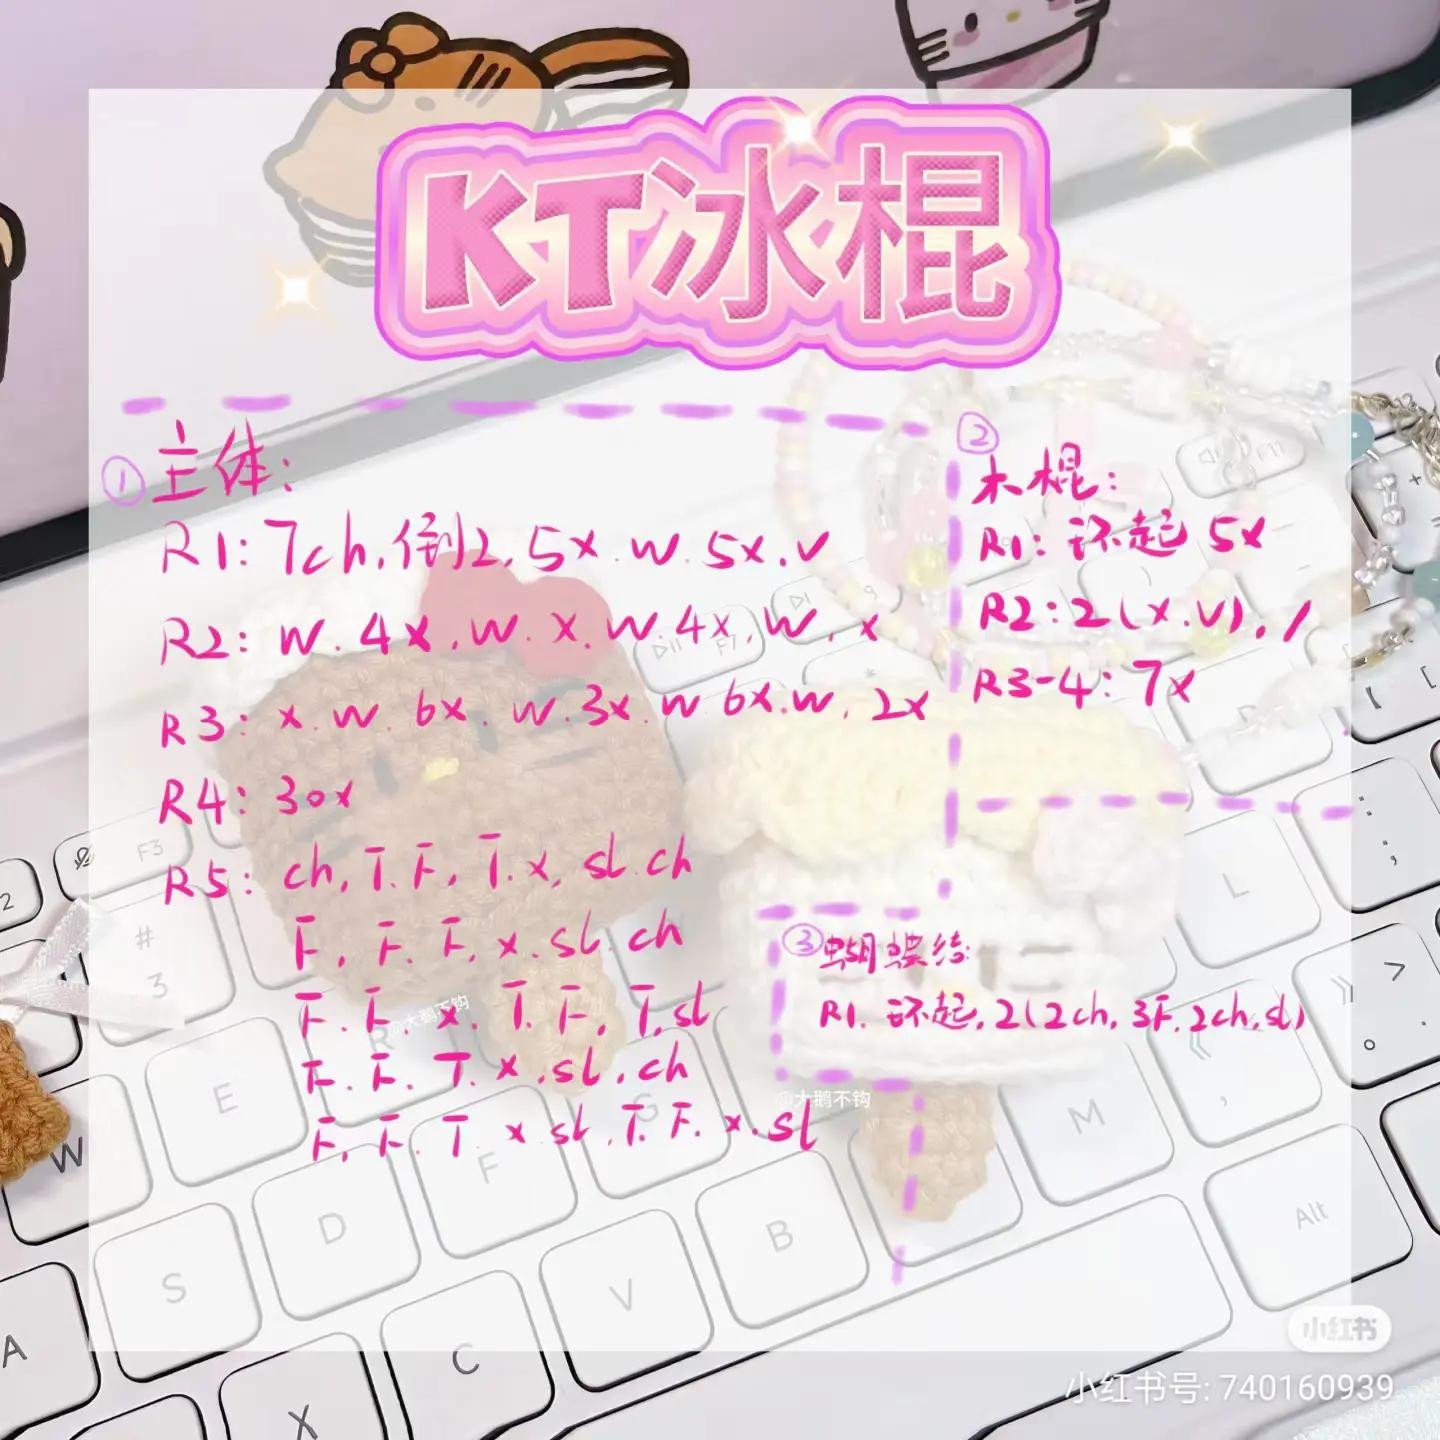 KT冰棍
① 主体:
R1: 7ch,倒2,5x.w.5x.v
R2: w.4x.w.x.w.4x.w.x
R3: x.w.6x.w.3x.w.6x.w.2x
R4: 30x
R5: ch,T.F,T.x,sl.ch
F,F.F,x.sl.ch
F.F.x.T.F,T,sl
F.F.T.x.sl.ch
F,F.T.x.sl,T.F.x.sl
② 木棍:
R1: 环起 5x
R2: 2(x.v),1
R3-4: 7x
③ 蝴蝶结:
R1. 环起,2(2ch,3F,2ch,sl)
@大鹅不钩
@大鹅不钩
F3
F7
F11
#
3
2
R
E
W
S
D
F
G
A
X
C
V
B
M
L
Alt
小红书
小红书号: 740160939